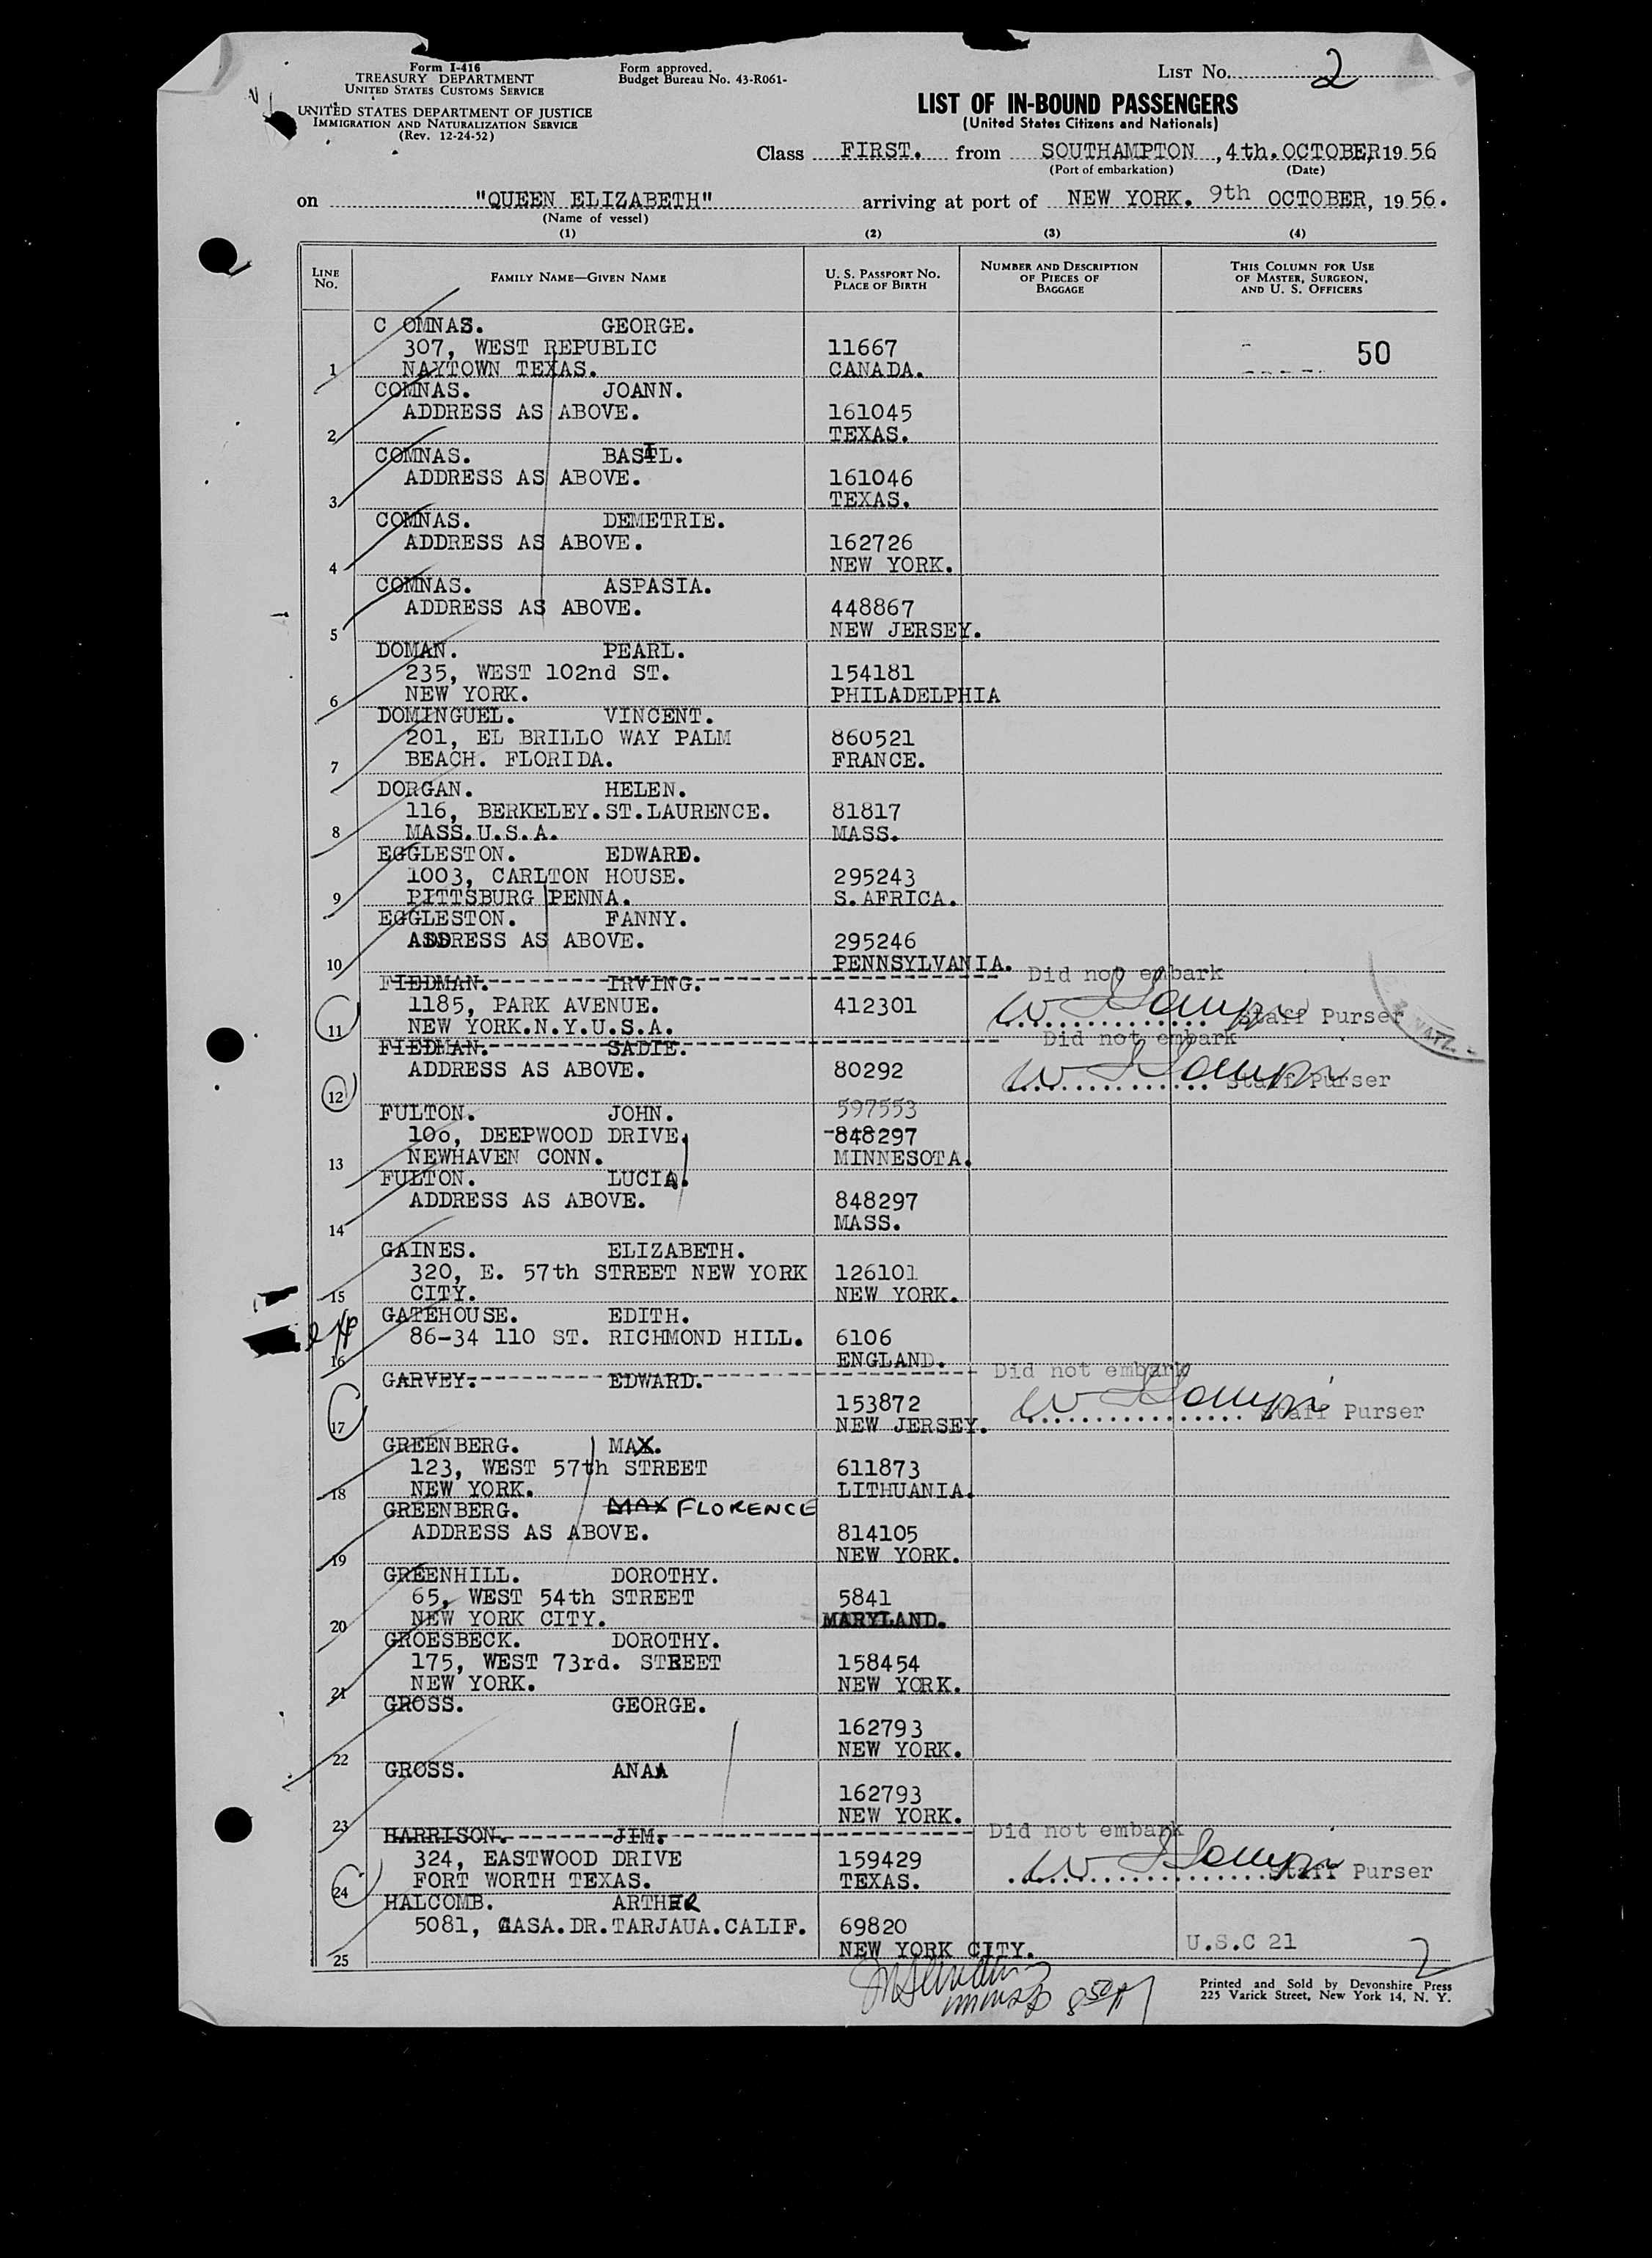 Form I-416
TREASURY DEPARTMENT
UNITED STATES CUSTOMS SERVICE
UNITED STATES DEPARTMENT OF JUSTICE
IMMIGRATION AND NATURALIZATION SERVICE
(Rev. 12-24-52)
Form approved.
Budget Bureau No. 43-R061-
LIST NO. 2
LIST OF IN-BOUND PASSENGERS
(United States Citizens and Nationals)
Class FIRST. from SOUTHAMPTON, 4th. OCTOBER, 1956
(Port of embarkation) (Date)
on "QUEEN ELIZABETH" arriving at port of NEW YORK. 9th OCTOBER, 1956.
(Name of vessel)
(1) (2) (3) (4)
LINE NO. FAMILY NAME—GIVEN NAME U. S. PASSPORT NO. PLACE OF BIRTH NUMBER AND DESCRIPTION OF PIECES OF BAGGAGE THIS COLUMN FOR USE OF MASTER, SURGEON, AND U. S. OFFICERS
C OMNAS. GEORGE.
307, WEST REPUBLIC 11667 50
1 NAYTOWN TEXAS. CANADA.
COMNAS. JOANN.
ADDRESS AS ABOVE. 161045
2 TEXAS.
COMNAS. BASIL.
ADDRESS AS ABOVE. 161046
3 TEXAS.
COMNAS. DEMETRIE.
ADDRESS AS ABOVE. 162726
4 NEW YORK.
COMNAS. ASPASIA.
ADDRESS AS ABOVE. 448867
5 NEW JERSEY.
DOMAN. PEARL.
235, WEST 102nd ST. 154181
6 NEW YORK. PHILADELPHIA
DOMINGUEL. VINCENT.
201, EL BRILLO WAY PALM 860521
7 BEACH. FLORIDA. FRANCE.
DORGAN. HELEN.
116, BERKELEY.ST.LAURENCE. 81817
8 MASS.U.S.A. MASS.
EGGLESTON. EDWARD.
1003, CARLTON HOUSE. 295243
9 PITTSBURG PENNA. S.AFRICA.
EGGLESTON. FANNY.
ADDRESS AS ABOVE. 295246
10 PENNSYLVANIA.
FIEDMAN. IRVING. Did not embark
1185, PARK AVENUE. 412301 Staff Purser
11 NEW YORK.N.Y.U.S.A.
FIEDMAN. SADIE. Did not embark
ADDRESS AS ABOVE. 80292 Staff Purser
12
FULTON. JOHN. 597553
10o, DEEPWOOD DRIVE. 848297
13 NEWHAVEN CONN. MINNESOTA.
FULTON. LUCIA.
ADDRESS AS ABOVE. 848297
14 MASS.
GAINES. ELIZABETH.
320, E. 57th STREET NEW YORK 126101
15 CITY. NEW YORK.
GATEHOUSE. EDITH.
86-34 110 ST. RICHMOND HILL. 6106
16 ENGLAND.
GARVEY. EDWARD. Did not embark
153872 Staff Purser
17 NEW JERSEY.
GREENBERG. MAX.
123, WEST 57th STREET 611873
18 NEW YORK. LITHUANIA.
GREENBERG. MAX FLORENCE
ADDRESS AS ABOVE. 814105
19 NEW YORK.
GREENHILL. DOROTHY.
65, WEST 54th STREET 5841
20 NEW YORK CITY. MARYLAND.
GROESBECK. DOROTHY.
175, WEST 73rd. STREET 158454
21 NEW YORK. NEW YORK.
GROSS. GEORGE.
162793
22 NEW YORK.
GROSS. ANAA
162793
23 NEW YORK.
HARRISON. JIM. Did not embark
324, EASTWOOD DRIVE 159429 Staff Purser
24 FORT WORTH TEXAS. TEXAS.
HALCOMB. ARTHER
5081, CASA.DR.TARJAUA.CALIF. 69820
25 NEW YORK CITY. U.S.C 21 2
Printed and Sold by Devonshire Press
225 Varick Street, New York 14, N. Y.